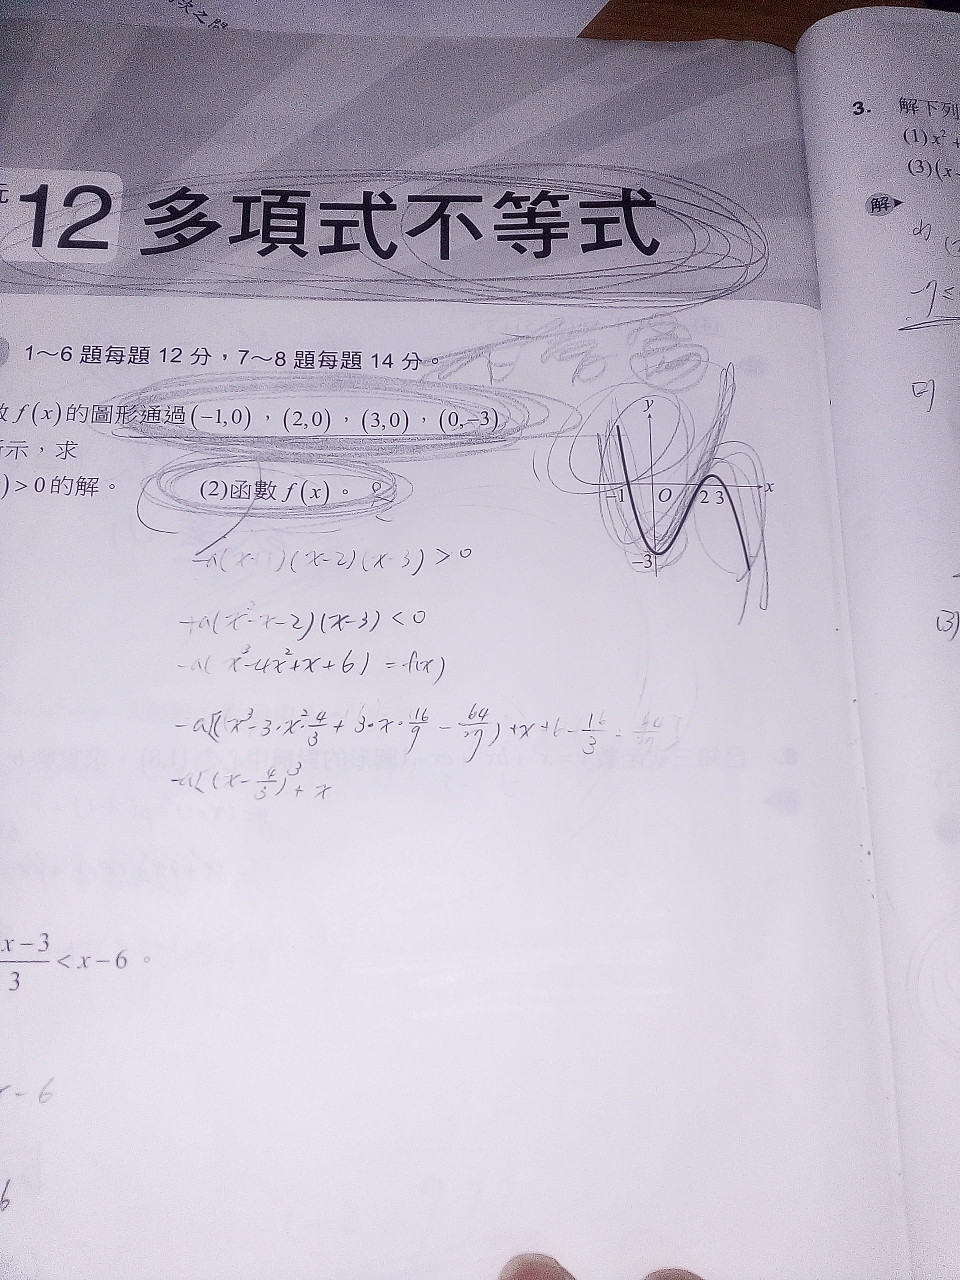 次之間
元
12 多項式不等式
1～6 題每題 12 分，7～8 題每題 14 分。
數 f(x) 的圖形通過 (−1,0)，(2,0)，(3,0)，(0,−3)
所示，求
)>0 的解。 (2)函數 f(x)。
y
−1 O 2 3 x
−3
-a(x+1)(x-2)(x-3)>0
+a(x²-x-2)(x-3)<0
-a(x³-4x²+x+6)=f(x)
-a[(x³-3·x²·4/3+3·x·16/9-64/27)+x+6-16/3
-a[(x-4/3)³+x
x−3/3 < x−6。
-6
6
3. 解下列
(1) x²+
(3)(x−
解
-7≤
(3)